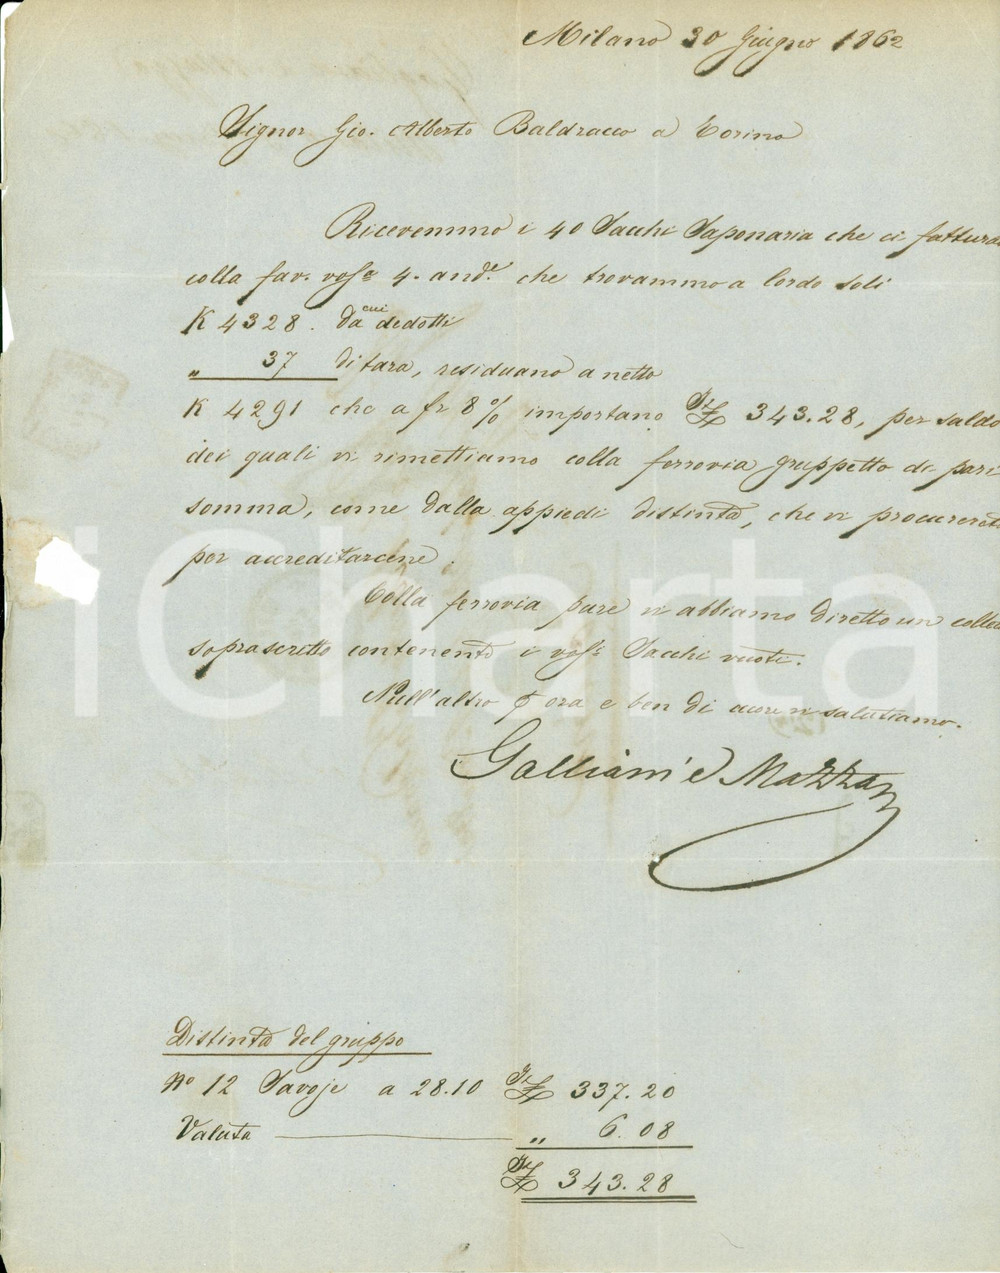 Milano 30 Giugno 1862
Signor Gio. Alberto Baldracco a Torino
Ricevemmo i 40 Sacchi Saponaria che ci fattura
colla fav. vosª 4. andᵉ che trovammo a lordo soli
K 4328. da cui dedotti
„ 37 di tara, residuano a netto
K 4291 che a fr 8 % importano It£ 343.28, per saldo
dei quali vi rimettiamo colla ferrovia gruppetto di pari
somma, come dalla appiedi distinta, che vi procurerete
per accreditarcene.
Colla ferrovia pure vi abbiamo diretto un collo
soprascritto contenente i vosⁱ Sacchi vuoti.
Null'altro p ora e ben di cuore vi salutiamo.
Galliani e Mazza
iCharta
Distinta del gruppo
Nº 12 Savoje a 28.10 It£ 337.20
Valuta „ 6.08
It£ 343.28